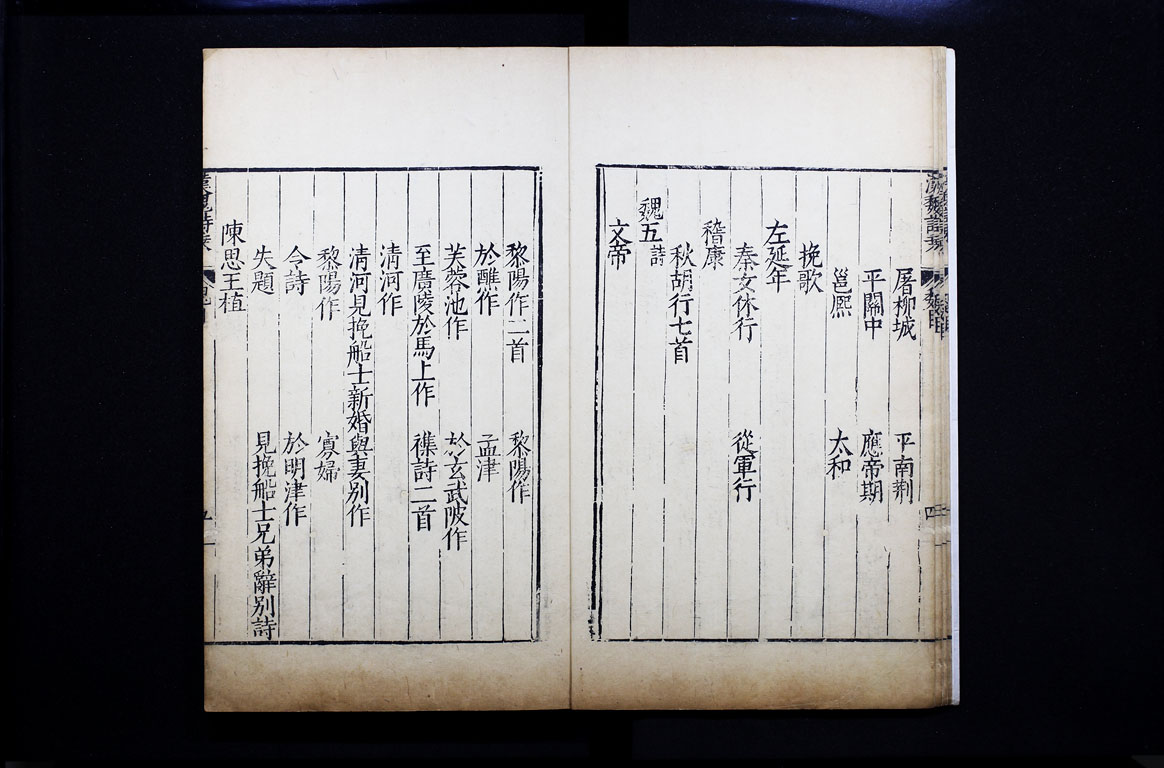 屠柳城 平南荆
平關中 應帝期
邕熈 太和
挽歌
左延年
秦女休行 從軍行
嵇康
秋胡行七首
魏五詩
文帝
黎陽作二首 黎陽作
於譙作 孟津
芙蓉池作 於玄武陂作
至廣陵於馬上作 襍詩二首
清河作
清河見挽船士新婚與妻別作
黎陽作 寡婦
令詩 於明津作
失題 見挽船士兄弟辭別詩
陳思王植